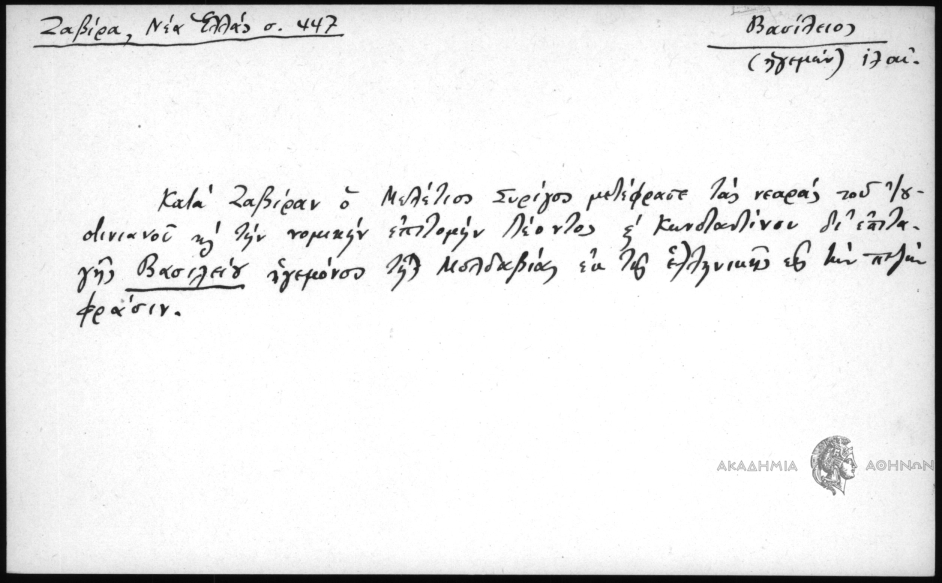 Ζαβίρα, Νέα Ἑλλάς σ. 447
Βασίλειος
(ἡγεμών)
Κατά Ζαβίραν ὁ Μελέτιος Συρίγος μετέφρασε τάς νεαράς τοῦ Ἰου-
στινιανοῦ κ̀ τήν νομικήν ἐπιτομήν Λέοντος κ̀ Κωνσταντίνου δι' ἐπιτα-
γῆς Βασιλείου ἡγεμόνος τῆς Μολδαβίας ἐκ τῆς ἑλληνικῆς εἰς τήν πεζήν
φράσιν.
ΑΚΑΔΗΜΙΑ ΑΘΗΝΩΝ